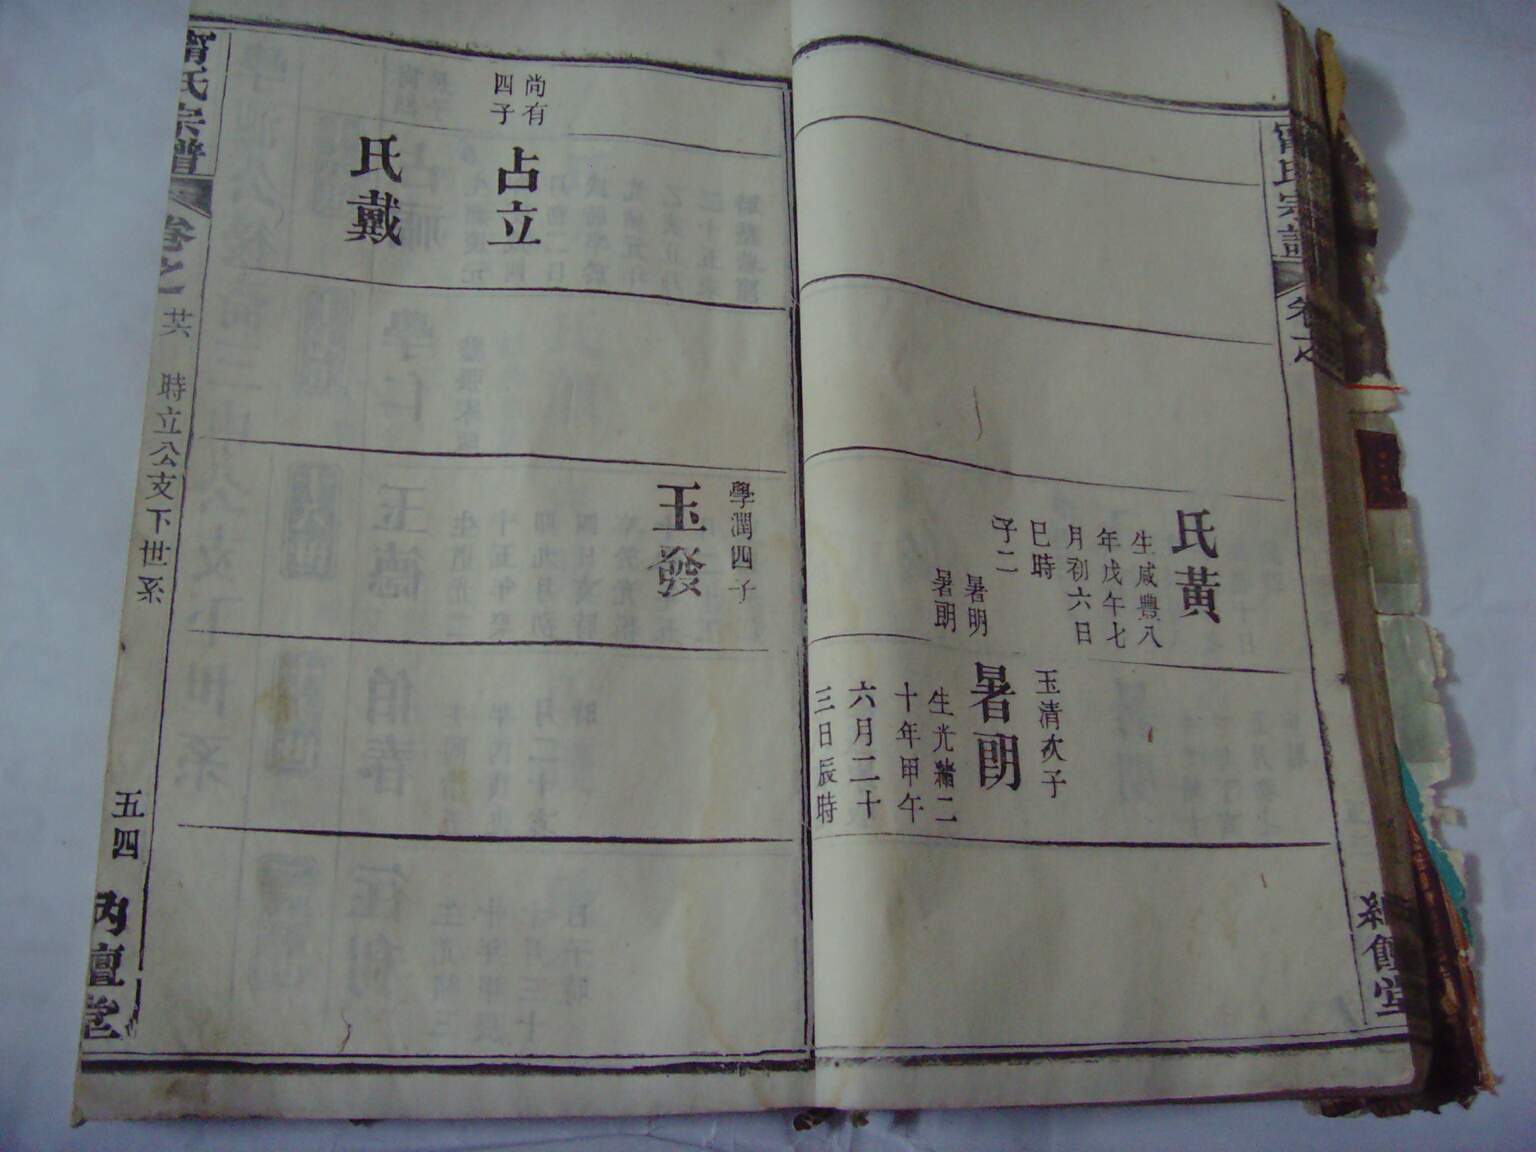 氏黃
生咸豐八
年戊午七
月初六日
巳時
子二
暑明
暑朗
玉清次子
暑朗
生光緒二
十年甲午
六月二十
三日辰時
尚有
四子
占立
氏戴
學潤四子
玉發
甯氏宗譜
卷之
時立公支下世系
五四